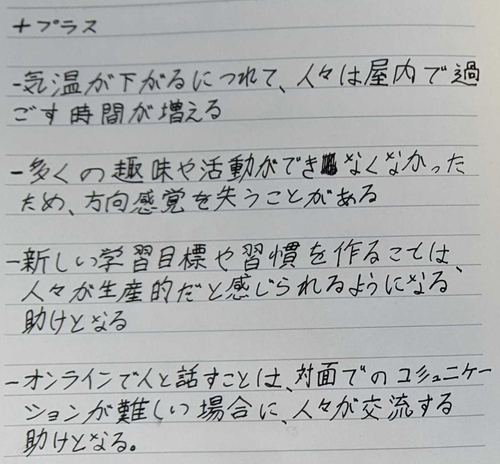 +プラス
-気温が下がるにつれて、人々は屋内で過
ごす時間が増える
-多くの趣味や活動ができなくなかった
ため、方向感覚を失うことがある
-新しい学習目標や習慣を作ることは、
人々が生産的だと感じられるようになる
助けとなる
-オンラインで人と話すことは、対面でのコミュニケー
ションが難しい場合に、人々が交流する
助けとなる。